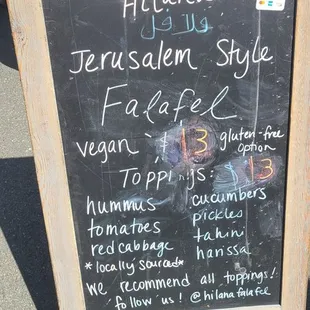 فلافل
Jerusalem Style
Falafel
vegan $13 gluten-free
option
Toppings: $13
hummus cucumbers
tomatoes pickles
red cabbage tahini
*locally sourced* harissa
we recommend all toppings!
follow us! @hilanafalafel